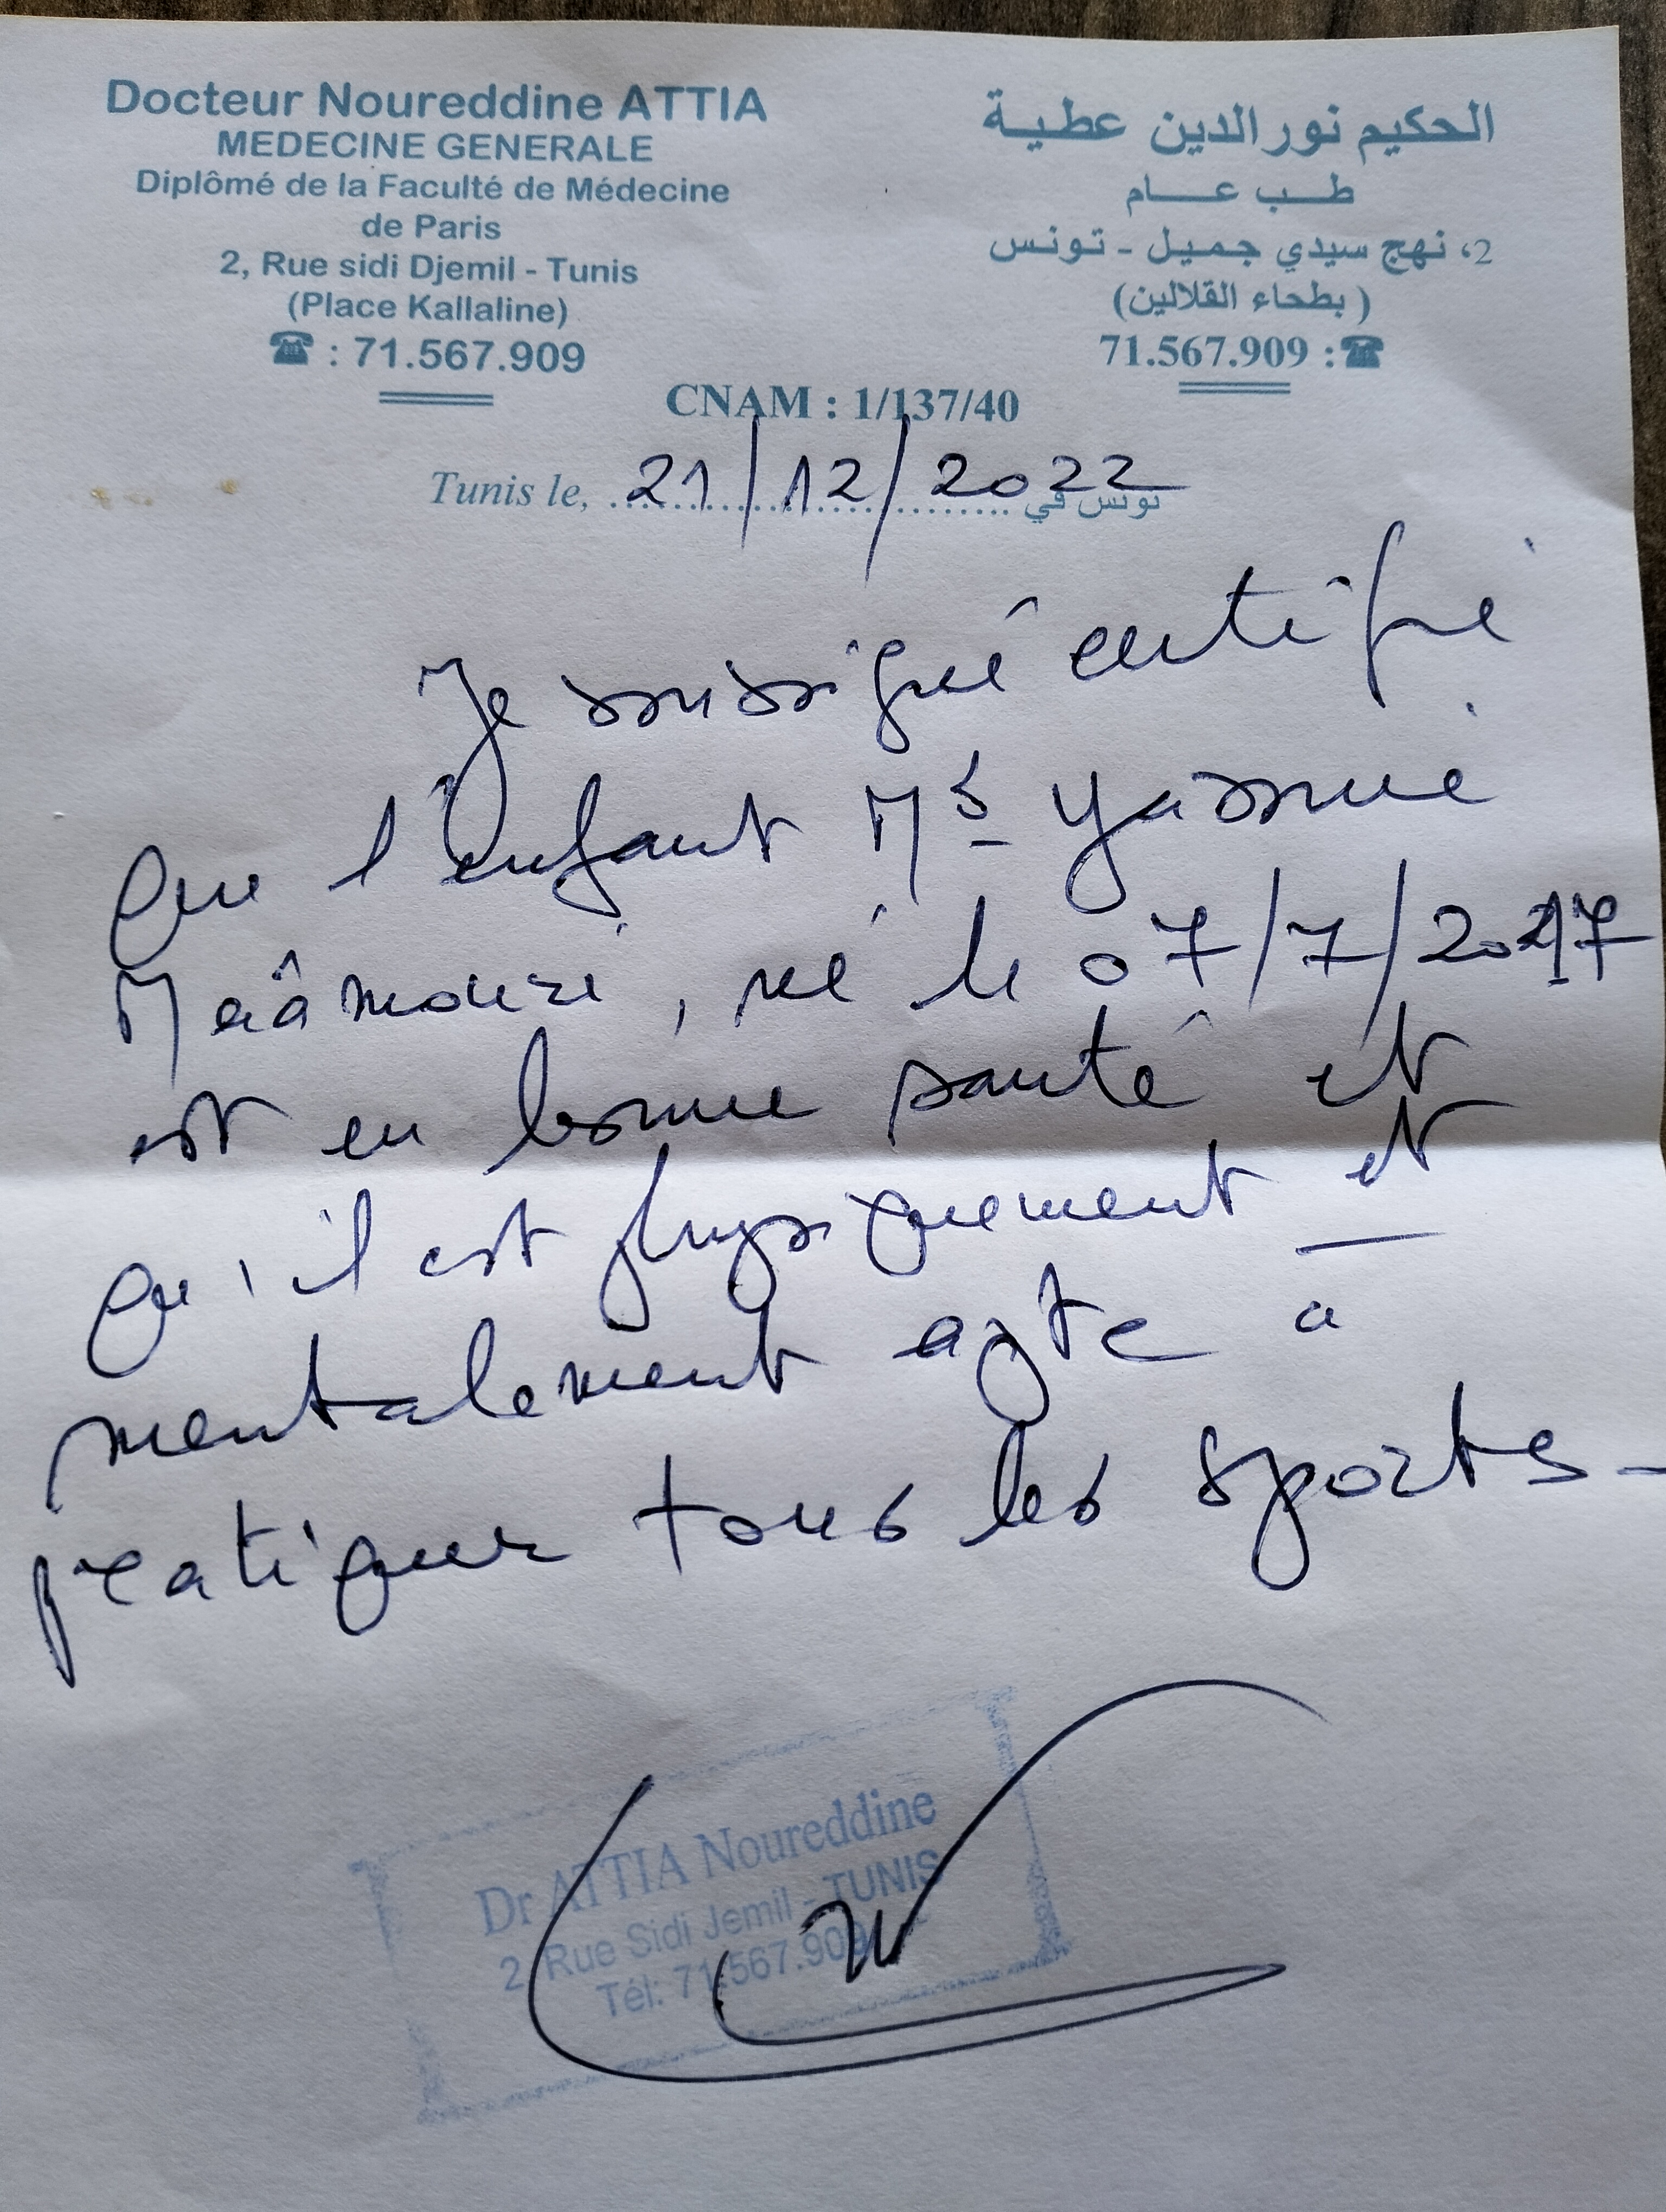 Docteur Noureddine ATTIA
MEDECINE GENERALE
Diplômé de la Faculté de Médecine
de Paris
2, Rue sidi Djemil - Tunis
(Place Kallaline)
☎ : 71.567.909
الحكيم نور الدين عطية
طب عام
2، نهج سيدي جميل - تونس
(بطحاء القلالين)
71.567.909 :☎
CNAM : 1/137/40
Tunis le, 21/12/2022 تونس في
Je soussigné certifie
que l'enfant Md Yassine
Maâmouri, né le 07/7/2017
est en bonne santé et
qu'il est physiquement et
mentalement apte a
pratiquer tous les sports-
Dr ATTIA Noureddine
2, Rue Sidi Jemil - TUNIS
Tél: 71.567.909